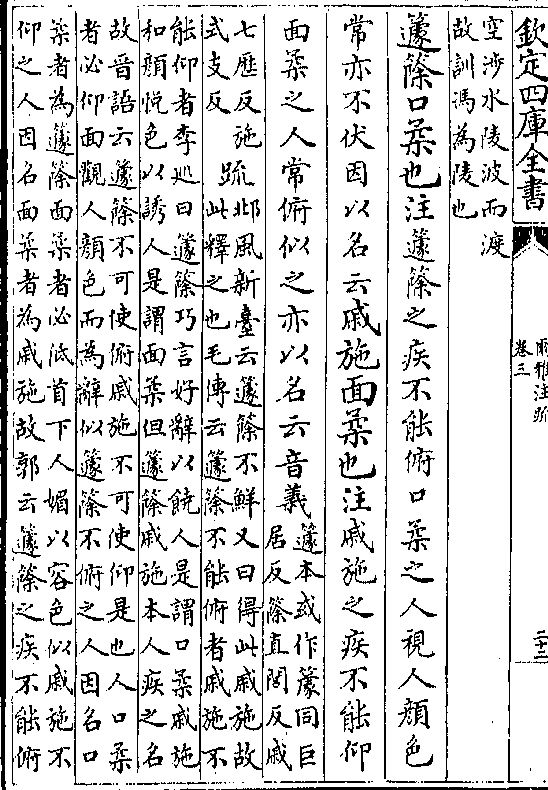 欽定四庫全書
爾雅注疏
卷三
二十二
空涉水陵波而渡
故訓馮為陵也
籧篨口柔也注籧篨之疾不能俯口柔之人視人顔色
常亦不伏因以名云戚施面柔也注戚施之疾不能仰
面柔之人常俯似之亦以名云音義籧本或作䕖同巨
居反篨直閭反戚
七歴反施
式支反
疏邶風新臺云籧篨不鮮又曰得此戚施故
此釋之也毛傳云籧篨不能俯者戚施不
能仰者李巡曰籧篨巧言好辭以饒人是謂口柔戚施
和顔悦色以誘人是謂面柔但籧篨戚施本人疾之名
故晉語云籧篨不可使俯戚施不可使仰是也人口柔
者必仰面觀人顔色而為辭似籧篨不俯之人因名口
柔者為籧篨面柔者必低首下人媚以容色似戚施不
仰之人因名面柔者為戚施故郭云籧篨之疾不能俯